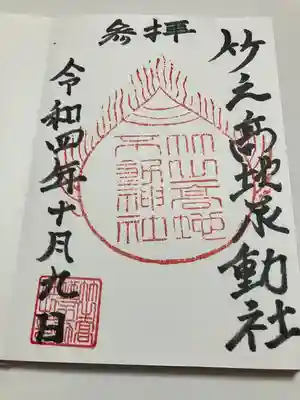 竹之高地不動社
参拝
竹之高地
不動神社
令和四年十月九日